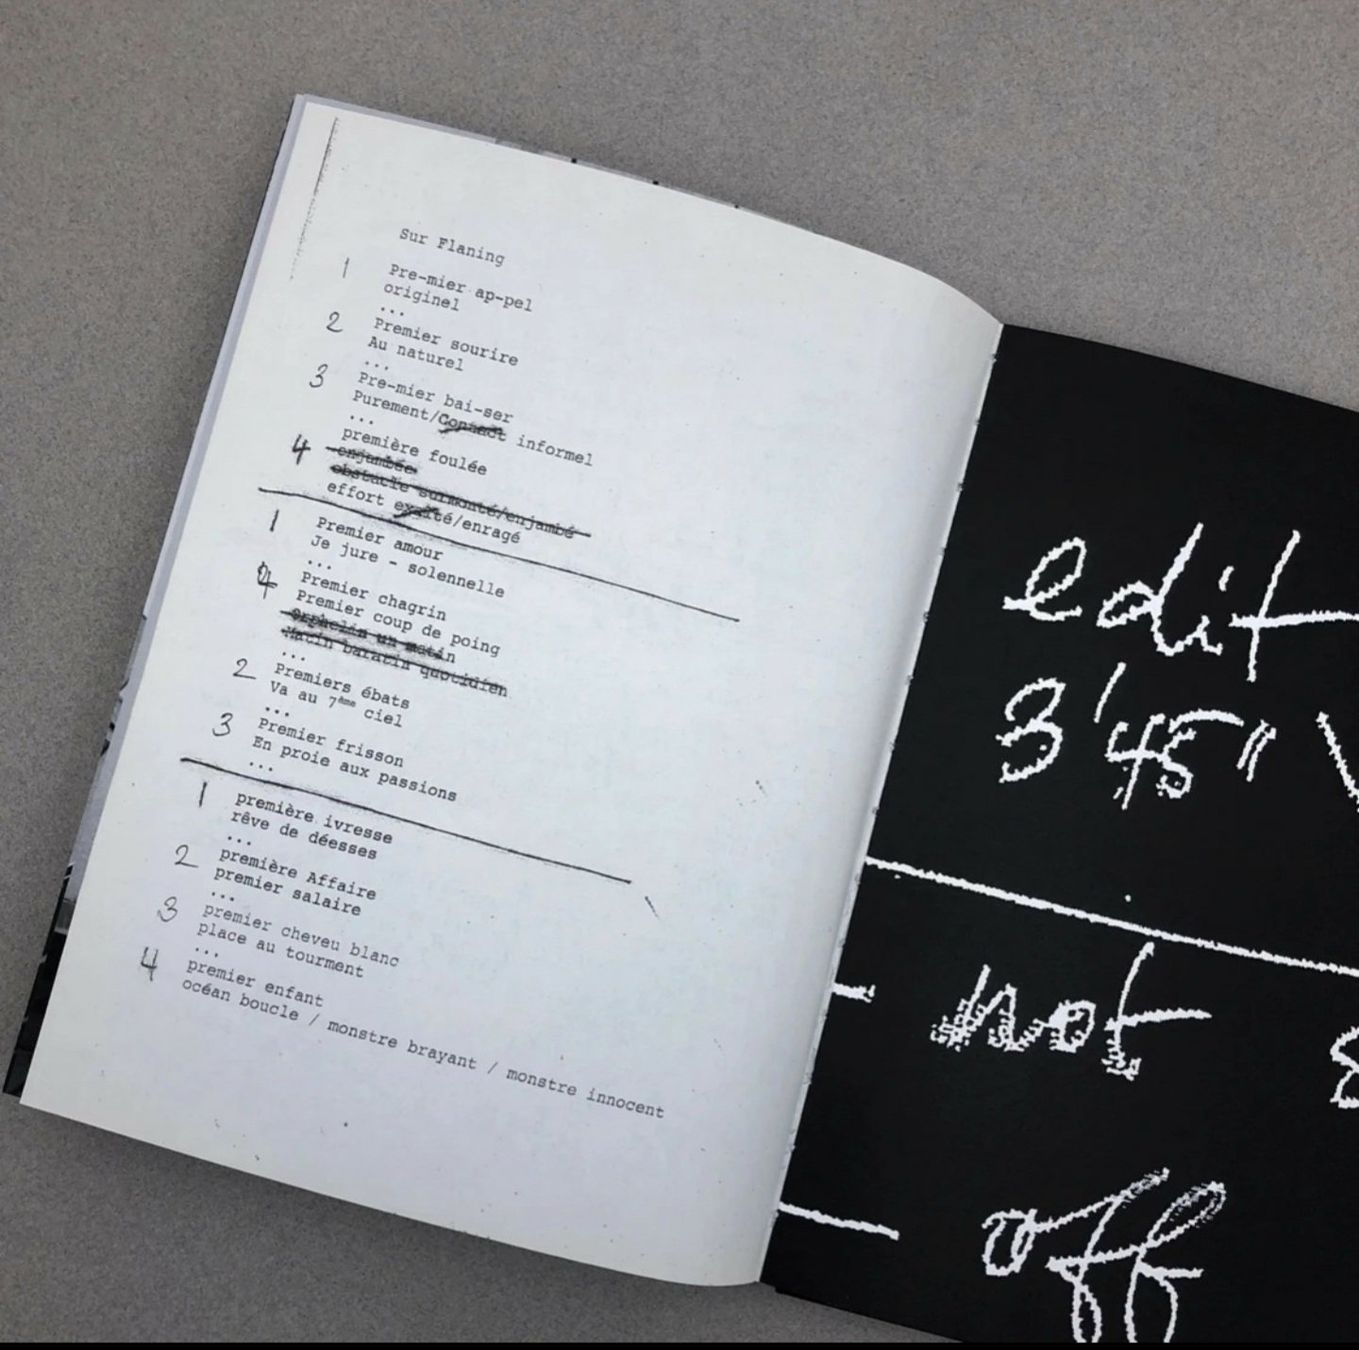 Sur Flaning
1 Pre-mier ap-pel
originel
...
2 Premier sourire
Au naturel
...
3 Pre-mier bai-ser
Purement/Connect informel
...
4 première foulée
enjambée
obstacle surmonté/enjambé
effort exalté/enragé
1 Premier amour
Je jure - solennelle
...
4 Premier chagrin
Premier coup de poing
Orphelin un matin
Matin baratin quotidien
...
2 Premiers ébats
Va au 7ème ciel
...
3 Premier frisson
En proie aux passions
...
1 première ivresse
rêve de déesses
...
2 première Affaire
premier salaire
...
3 premier cheveu blanc
place au tourment
...
4 premier enfant
océan boucle / monstre brayant / monstre innocent
edit
3'45"
not
off